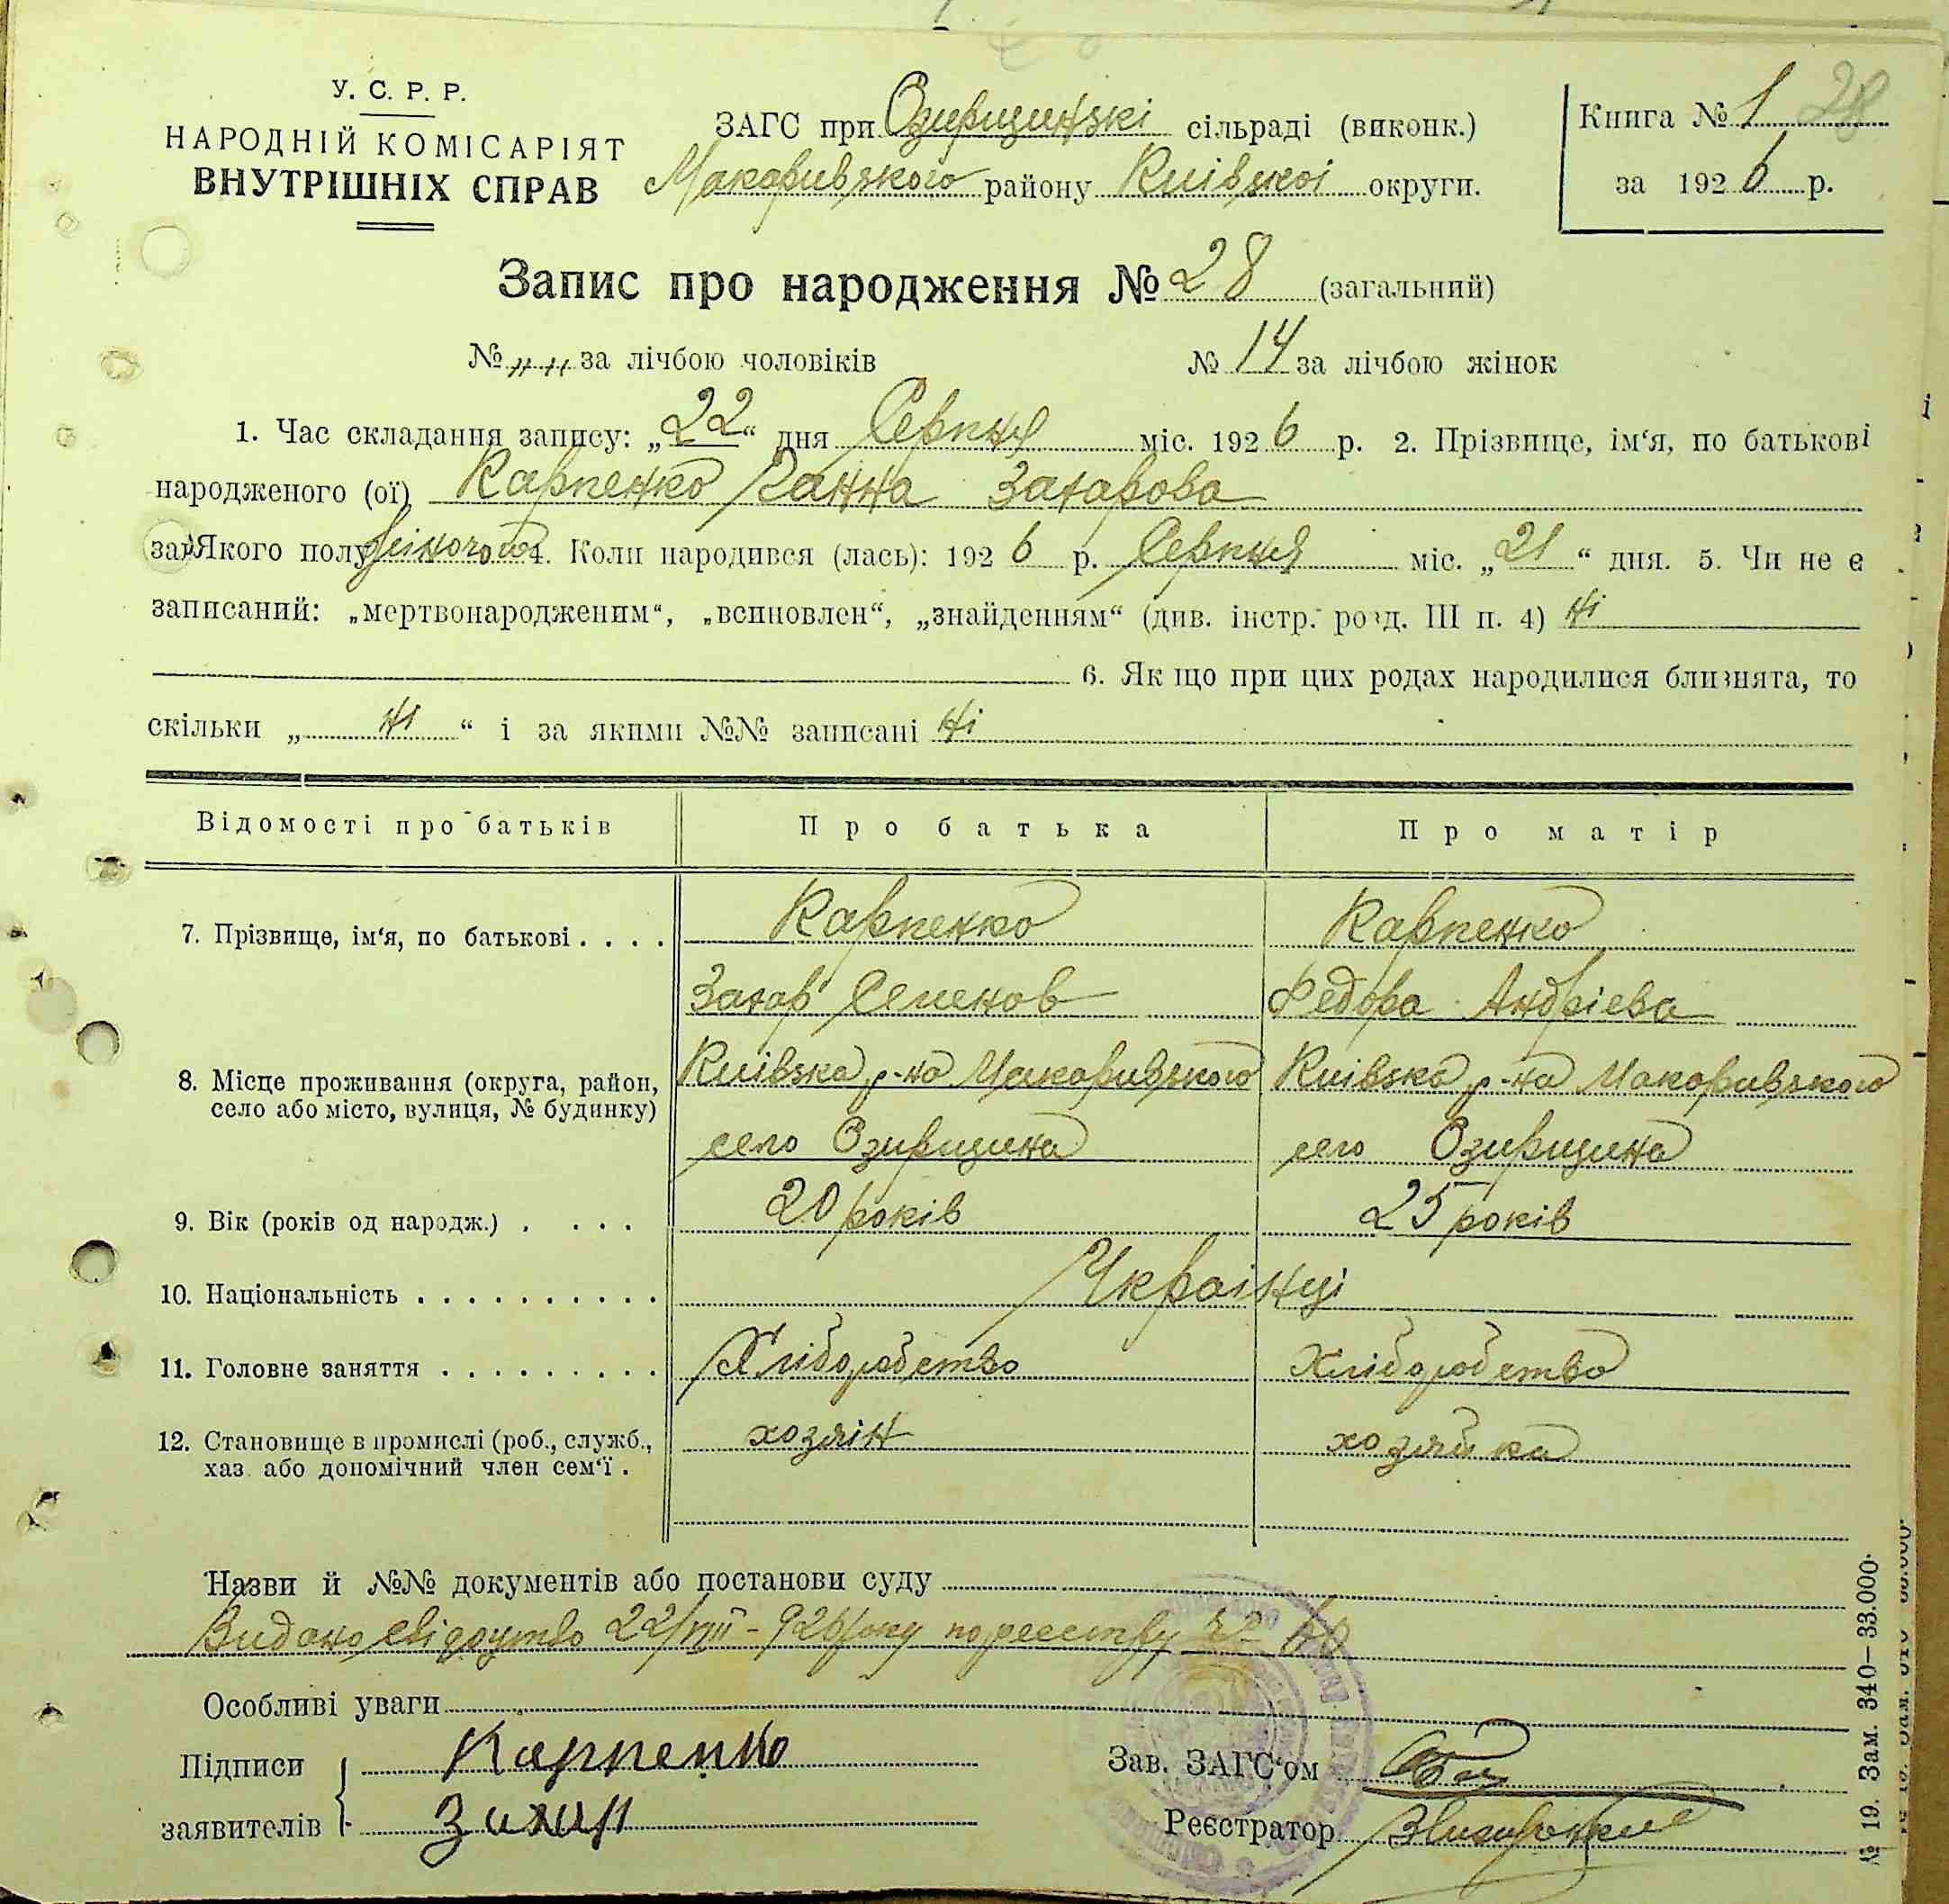 У. С. Р. Р.
НАРОДНІЙ КОМІСАРІЯТ
ВНУТРІШНІХ СПРАВ
ЗАГС при Озирщинзкі сільраді (виконк.)
Макаривзкого району Киівзкоі округи.
Книга № 1 28
за 1926 р.
Запис про народження № 28 (загальний)
№ „ „ за лічбою чоловіків № 14 за лічбою жінок
1. Час складання запису: „22“ дня Серпня міс. 1926 р. 2. Прізвище, ім‘я, по батькові
народженого (ої) Карпенко Ганна Захарова
Якого полу жіночого 4. Коли народився (лась): 1926 р. Серпня міс. „21“ дня. 5. Чи не є
записаний: „мертвонародженим“, „всиновлен“, „знайденням“ (див. інстр. розд. III п. 4) ні
6. Якщо при цих родах народилися близнята, то
скільки „ ні “ і за якими №№ записані ні
Відомості про батьків Про батька Про матір
7. Прізвище, ім‘я, по батькові . . . . Карпенко Карпенко
Захар Семенов Федора Андріева
8. Місце проживання (округа, район, Киівзка р-на Макаривзкого Киівзка р-на Макаривзкого
село або місто, вулиця, № будинку) село Озирщина село Озирщина
9. Вік (років од народж.) . . . . 20 років 25 років
10. Національність . . . . . . . . . . Украінці
11. Головне заняття . . . . . . . . . Хліборобство Хліборобство
12. Становище в промислі (роб., служб., хозяін хозяйка
хаз. або допомічний член сем‘ї .
Назви й №№ документів або постанови суду
Видано свідоцтво 22/VIII-926 року по реестру №
Особливі уваги
Підписи Карпенко Зав. ЗАГС‘ом
заявителів Захар Реєстратор
№ 19. Зам. 340—33.000.